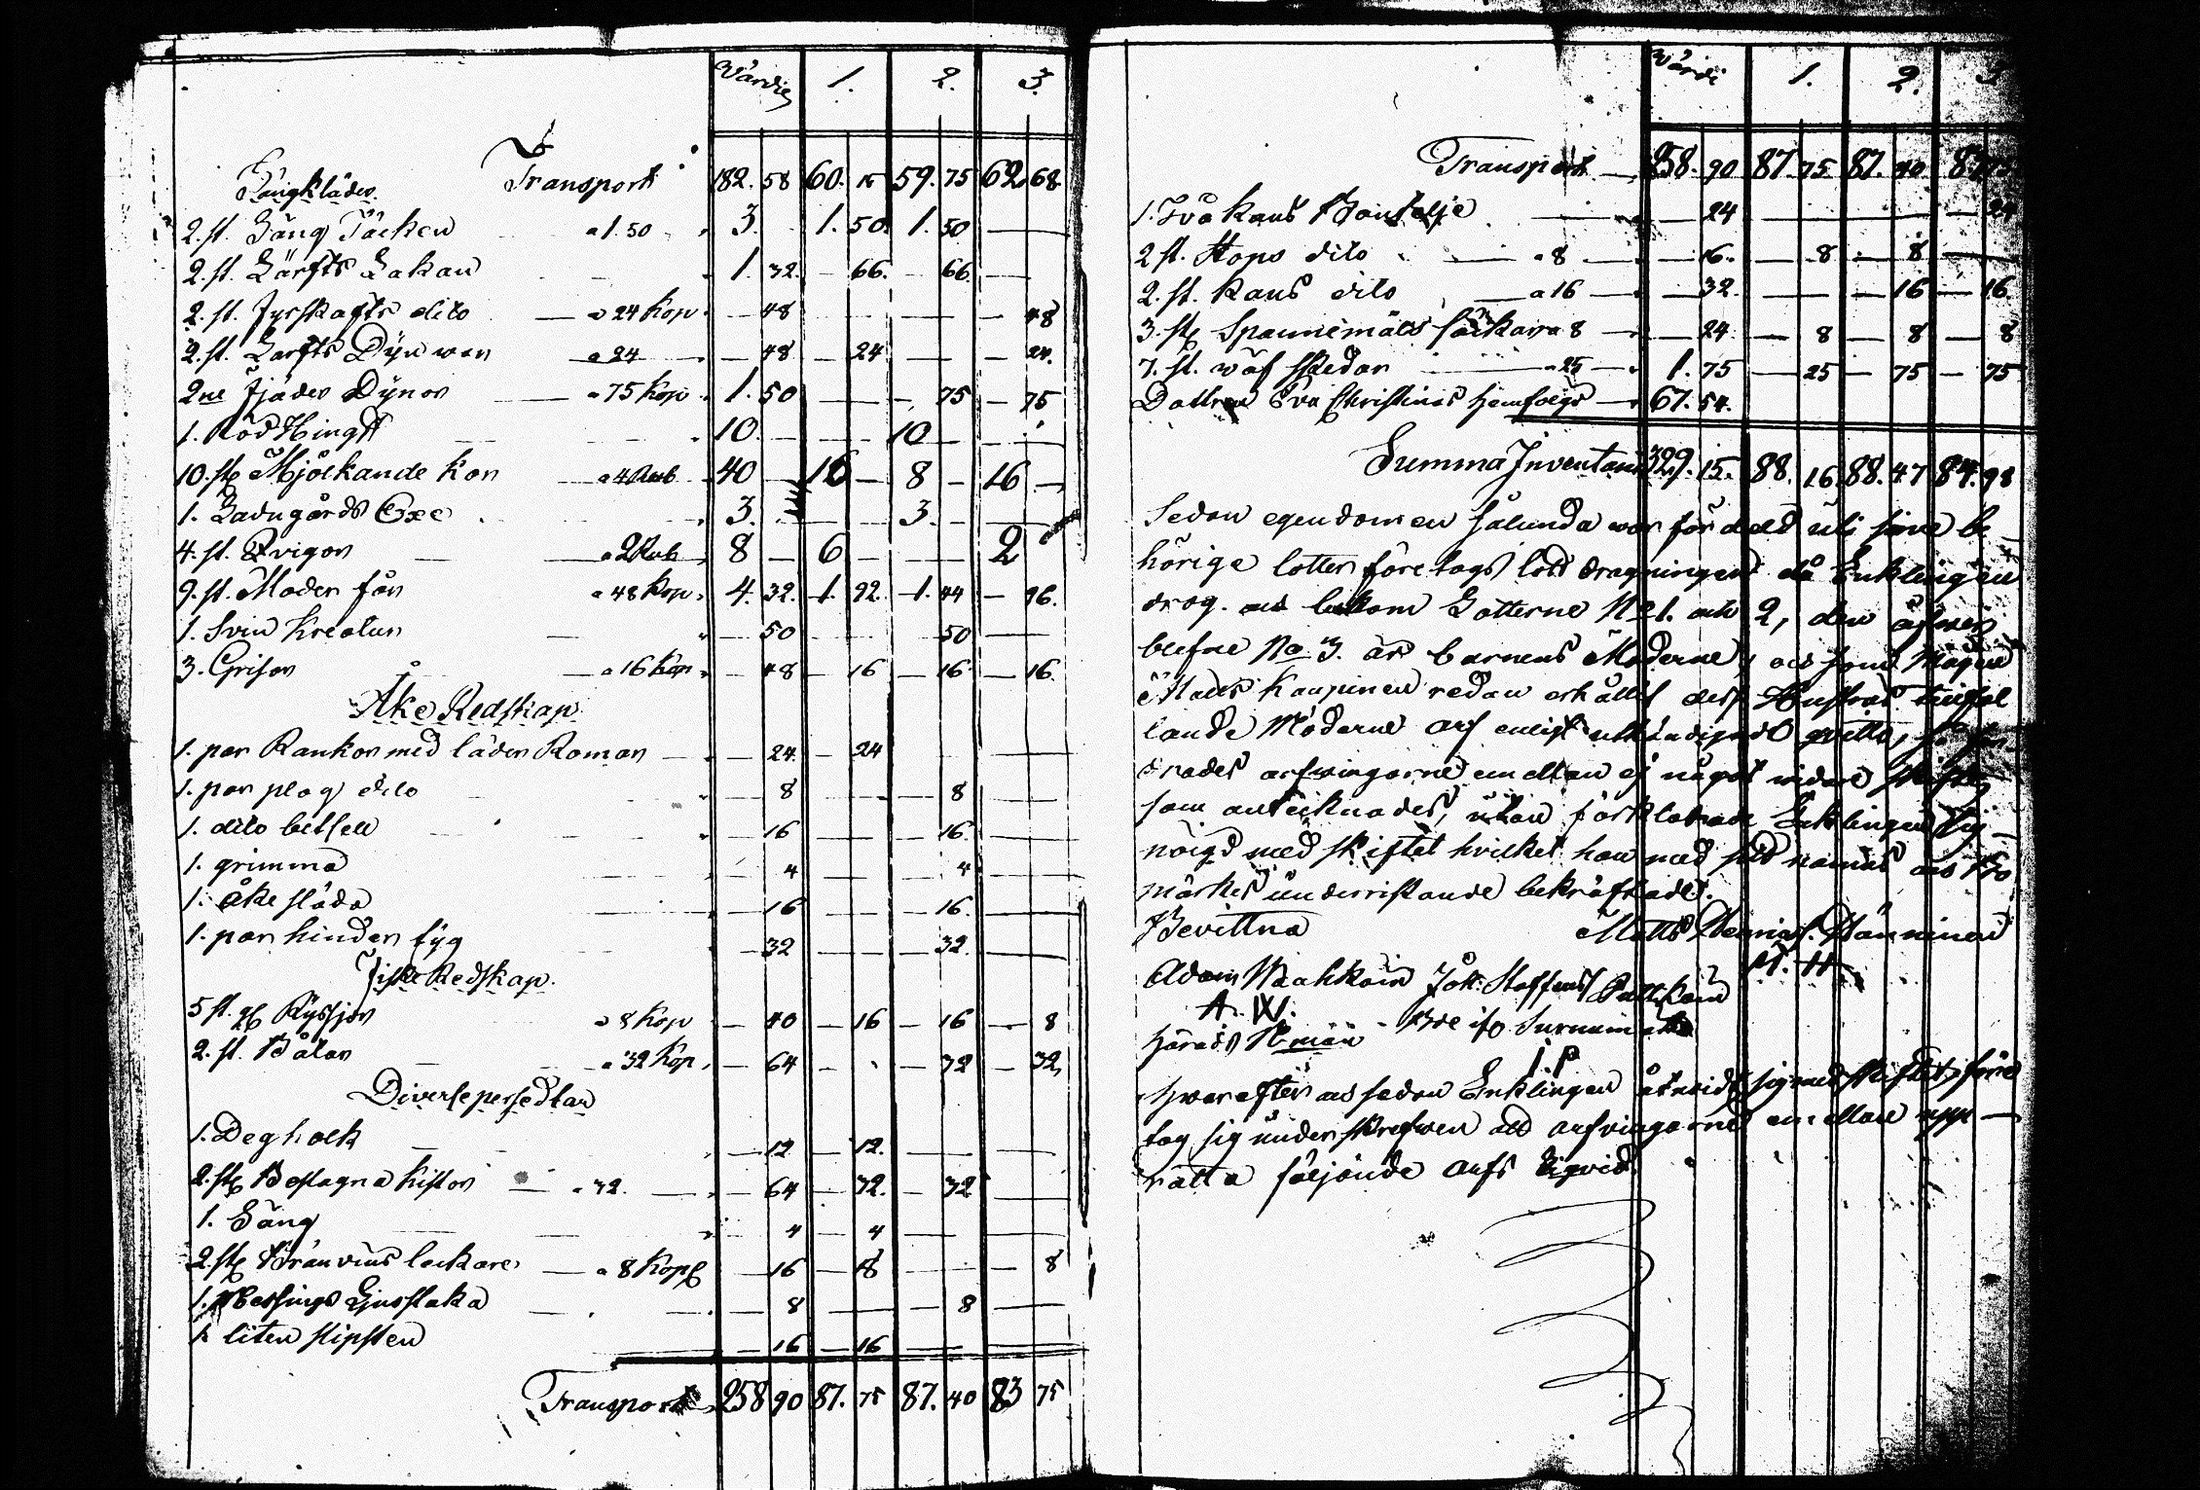 Värdie 1. 2. 3.
Transport 182. 58 60. 15 59. 75 62. 68.
Sängkläder
2. st. Säng Täcken a 1. 50 3. 1. 50. 1. 50 —
2. st. Lärfts Lakan 1. 32. — 66. — 66. —
2. st. fyrskafts dito — a 24 Kop. — 48 — — — 48
2. st. Larfts Dÿn war — a 24 — 48 — 24 — — 24.
2ne fjäder Dÿnor — a 75 Kop. 1. 50 — — 75 — 75
1. Röd Hingst 10. — — 10 —
10. st. Mjölkande Kor — a 4 Rub 40 — 16 — 8 — 16 —
1. Ladugårds Oxe 3. — — 3. —
4. st. Qvigor — a 2 Rub 8 — 6 — — 2
9. st. Moder får a 48 Kop. 4. 32. 1. 92. 1. 44 — 96.
1. Svin Kreatur — — 50 — 50 —
3. Grisar — a 16 Kop. — 48 — 16 — 16 — 16.
Åke Redskap.
1. par Rankor med läder Roman — 24. — 24 —
1. par plog dito — 8 — 8 —
1. dito betsell — 16 — 16. —
1. grimma — 4 — 4 —
1. åke släda — 16 — 16. —
1. par hinder tÿg — 32 — 32. —
Fiske Redskap.
5 st. Rÿssjor a 8 Kop — 40 — 16 — 16 — 8
2. st. Båtar — a 32 Kop. — 64 — 32 — 32,
Diverse persedlar
1. Deg holk — 12 — 12. —
2. st. Beslagna Kistor — a 32. — 64 — 32. — 32 —
1. Säng — 4 — 4 —
2. st. Bränvins lackare — a 8 Kop. — 16 — 8 — 8
1. Messings Ljusstaka — 8 — 8 —
1. liten slipsten — 16 — 16 —
Transport 258 90 87. 75 87. 40 83 75
Värdi 1. 2. 3
Transport — 258. 90 87. 75. 87. 40
1. Två Kans Bouteljé — 24 — — 24
2 st. Stops dito — a 8 — 16. — 8 — 8 —
2. st. Kans dito — a 16 — 32. — — 16 — 16
3. st. Spannemåls säckar a 8 — 24 — 8 — 8 — 8
7. st. väf skedar — a 25 — 1. 75 — 25 — 75 — 75
Dottren Eva Christinas hemfölgd — 67. 54.
Summa Inventarii 329. 15. 88. 16. 88. 47 84. 98
Sedan egendomen sålunda war fördeld uti sine be
hörige lotter företogs lottdragningen då Enklingen
drog. och bekom Lotterne No 1. och 2, den
blefne No 3. är barnens Möderne, och som Mågen
Mats Kaupinen redan erhållit dess Hustrus
lande Möderne arf enligt qvitto,
arfvingarne emellan ej något vidare
som antecknades, utan förklarade Enklingen sig
nöigd med skiftet hvilket han med sitt namns och Bo
märkes underristande bekräftade.
Bevittna Matts Hänninen
Adam Mahkoin Joh. Staffans
A. W.
härads
i. p
hwarefter och sedan Enklingen åtnöidt sig med skiftet, före
tog sig under skrefven att arfvingarne emellan upp —
rätta följande arfs Liqvid.